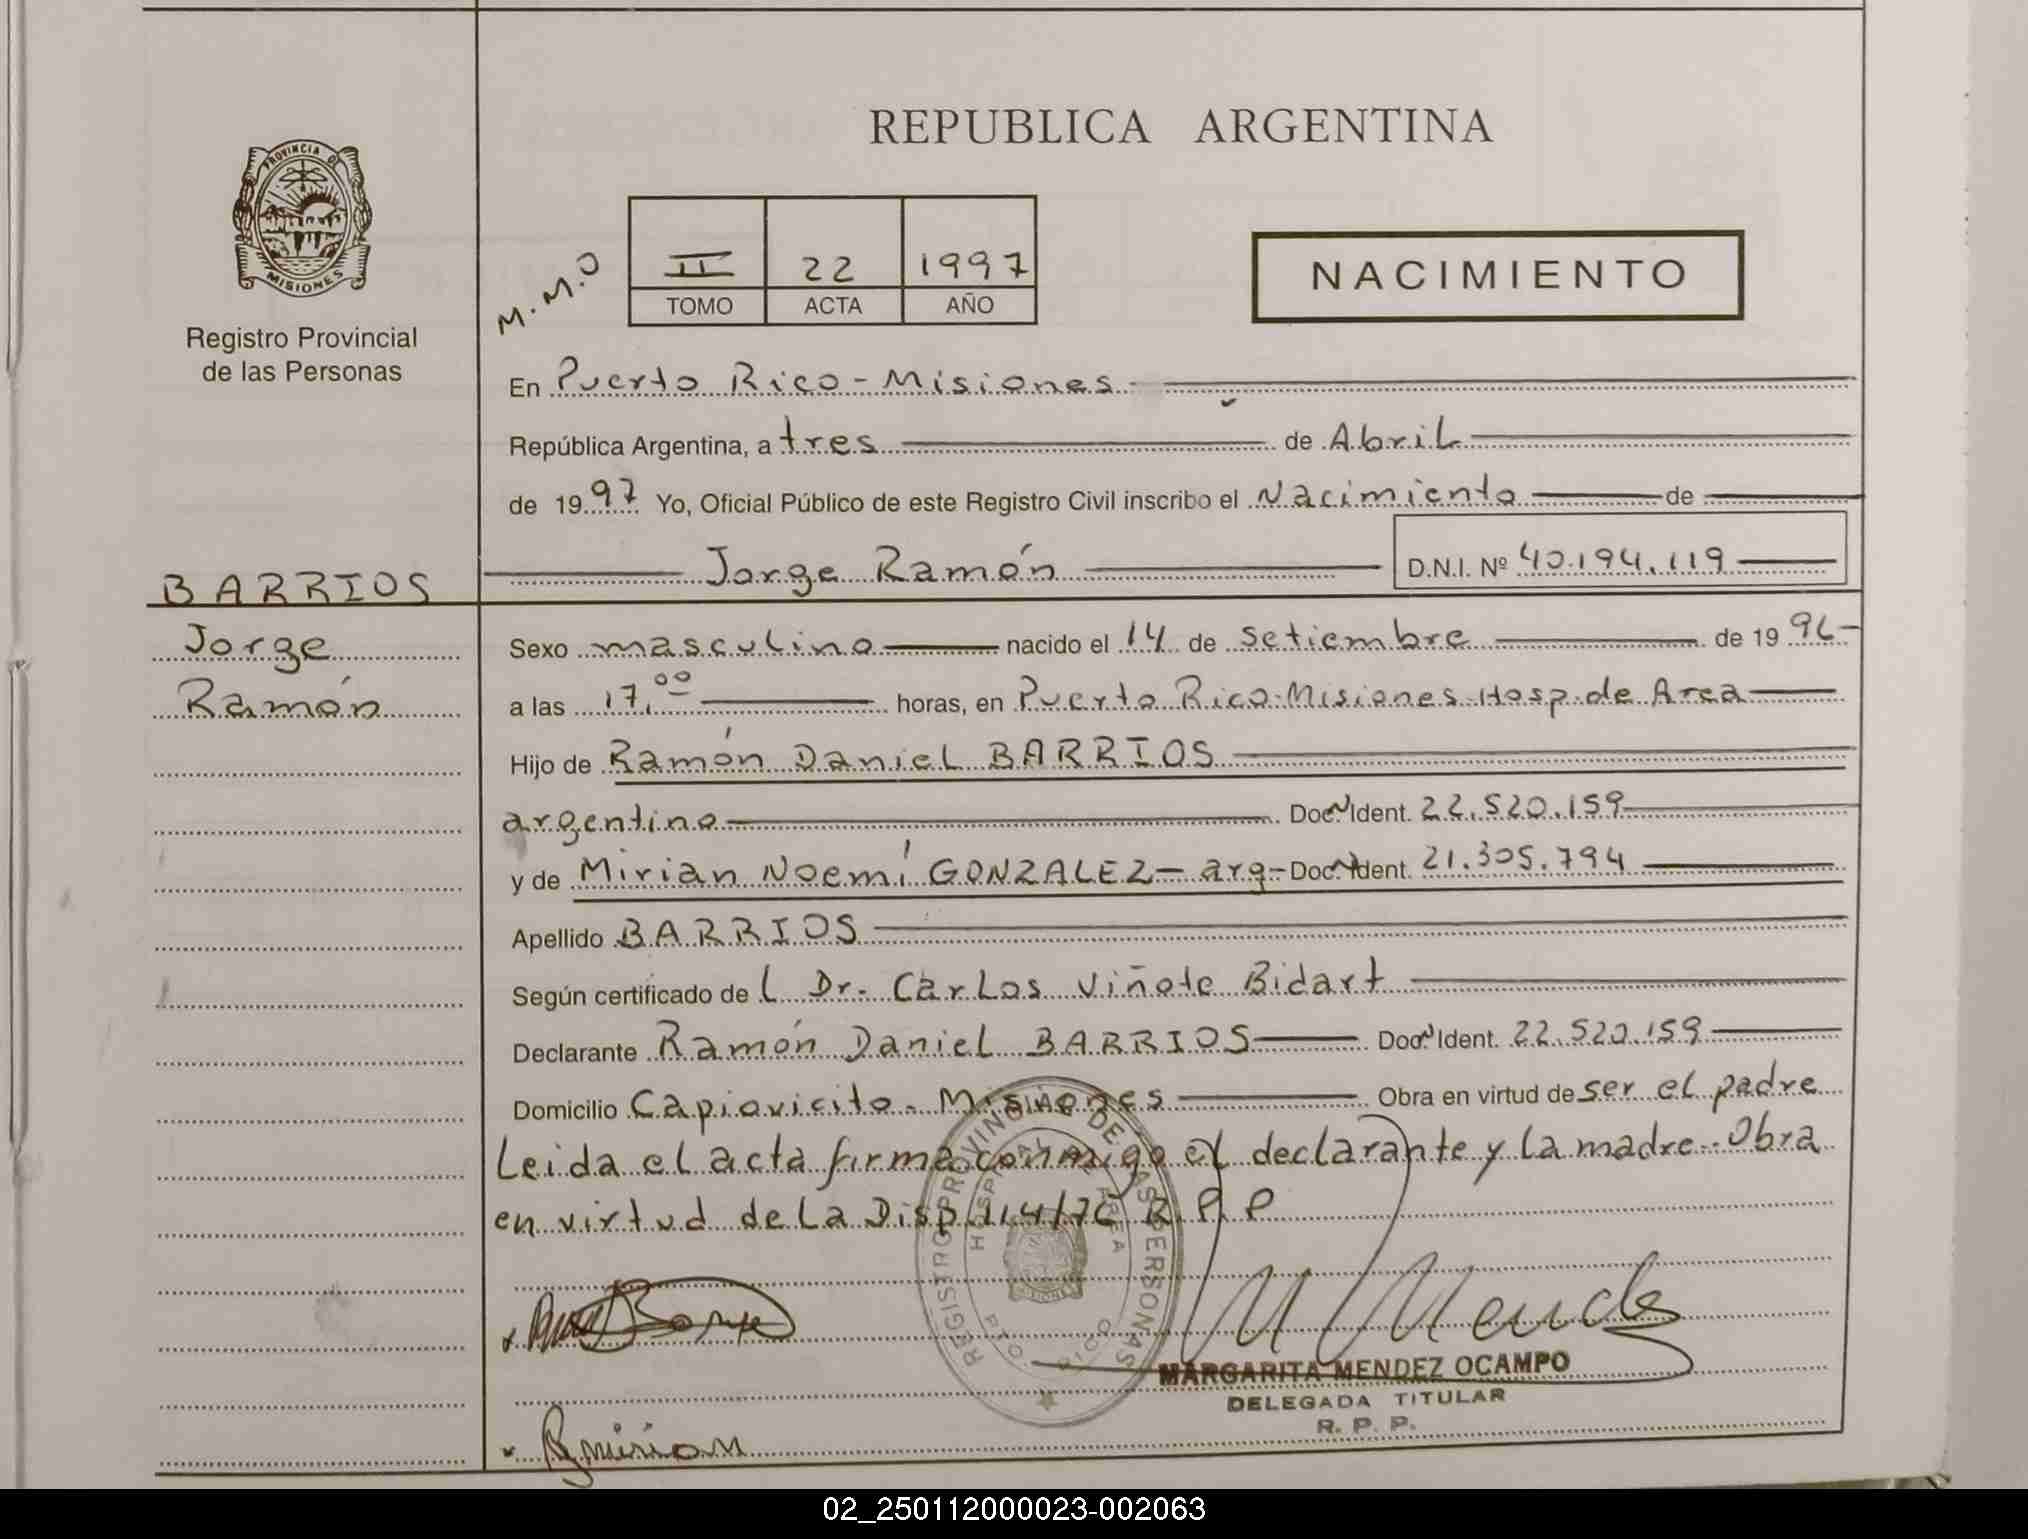 REPUBLICA ARGENTINA
PROVINCIA DE
MISIONES
Registro Provincial
de las Personas
M.M.O
II 22 1997
TOMO ACTA AÑO
NACIMIENTO
En Puerto Rico - Misiones
República Argentina, a tres de Abril
de 1997 Yo, Oficial Público de este Registro Civil inscribo el Nacimiento de
Jorge Ramón D.N.I. Nº 40.194.119
BARRIOS
Jorge
Ramón
Sexo masculino nacido el 14 de Setiembre de 1996
a las 17,00 horas, en Puerto Rico-Misiones-Hosp. de Area
Hijo de Ramón Daniel BARRIOS
argentino Doc. Ident. 22.520.159
y de Mirian Noemí GONZALEZ - arg - Doc. Ident. 21.305.794
Apellido BARRIOS
Según certificado del Dr. Carlos Viñote Bidart
Declarante Ramón Daniel BARRIOS Doc. Ident. 22.520.159
Domicilio Capiovicito - Misiones Obra en virtud de ser el padre
Leida el acta firma conmigo el declarante y la madre - Obra
en virtud de la Disp. 114/76 R.P.P
REGISTRO PROVINCIAL DE LAS PERSONAS
HOSPITAL DE AREA
PTO. RICO
MISIONES
M Mendez
MARGARITA MENDEZ OCAMPO
DELEGADA TITULAR
R. P. P.
02_250112000023-002063